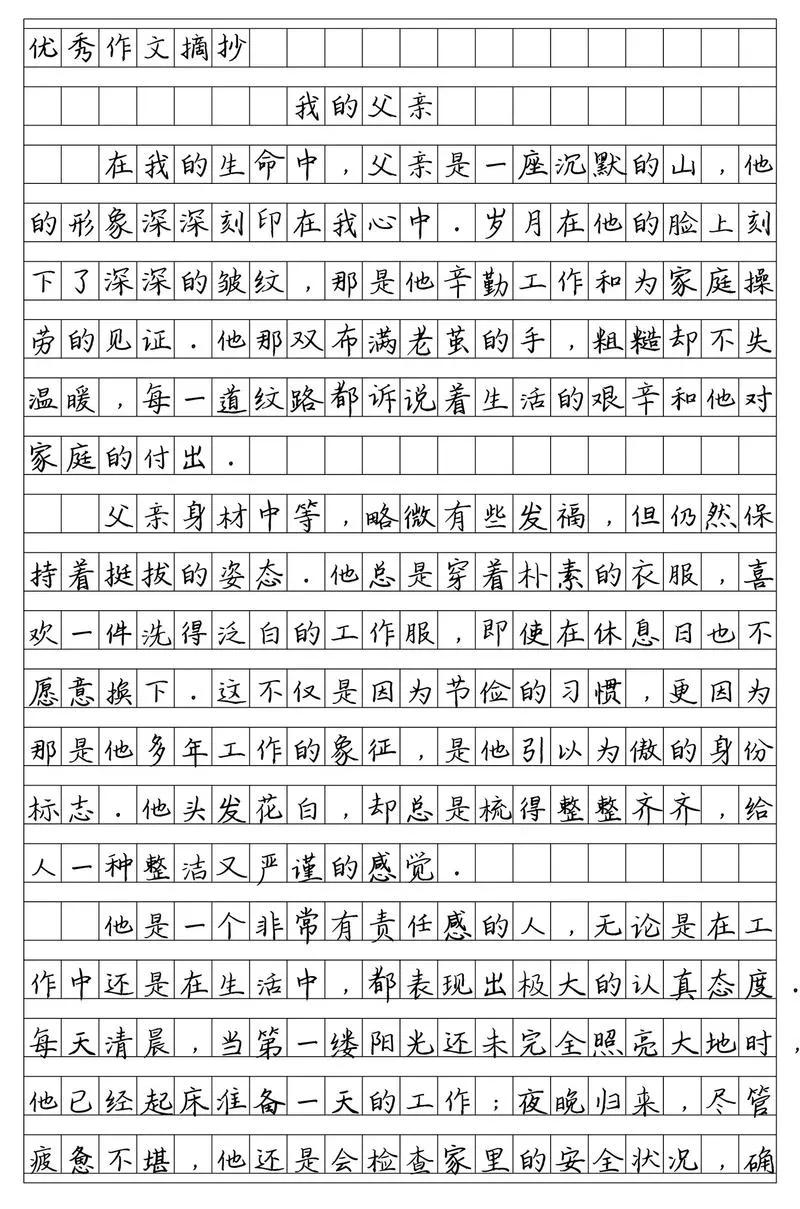 优秀作文摘抄
我的父亲
在我的生命中，父亲是一座沉默的山，他
的形象深深刻印在我心中．岁月在他的脸上刻
下了深深的皱纹，那是他辛勤工作和为家庭操
劳的见证．他那双布满老茧的手，粗糙却不失
温暖，每一道纹路都诉说着生活的艰辛和他对
家庭的付出．
父亲身材中等，略微有些发福，但仍然保
持着挺拔的姿态．他总是穿着朴素的衣服，喜
欢一件洗得泛白的工作服，即使在休息日也不
愿意换下．这不仅是因为节俭的习惯，更因为
那是他多年工作的象征，是他引以为傲的身份
标志．他头发花白，却总是梳得整整齐齐，给
人一种整洁又严谨的感觉．
他是一个非常有责任感的人，无论是在工
作中还是在生活中，都表现出极大的认真态度．
每天清晨，当第一缕阳光还未完全照亮大地时，
他已经起床准备一天的工作；夜晚归来，尽管
疲惫不堪，他还是会检查家里的安全状况，确